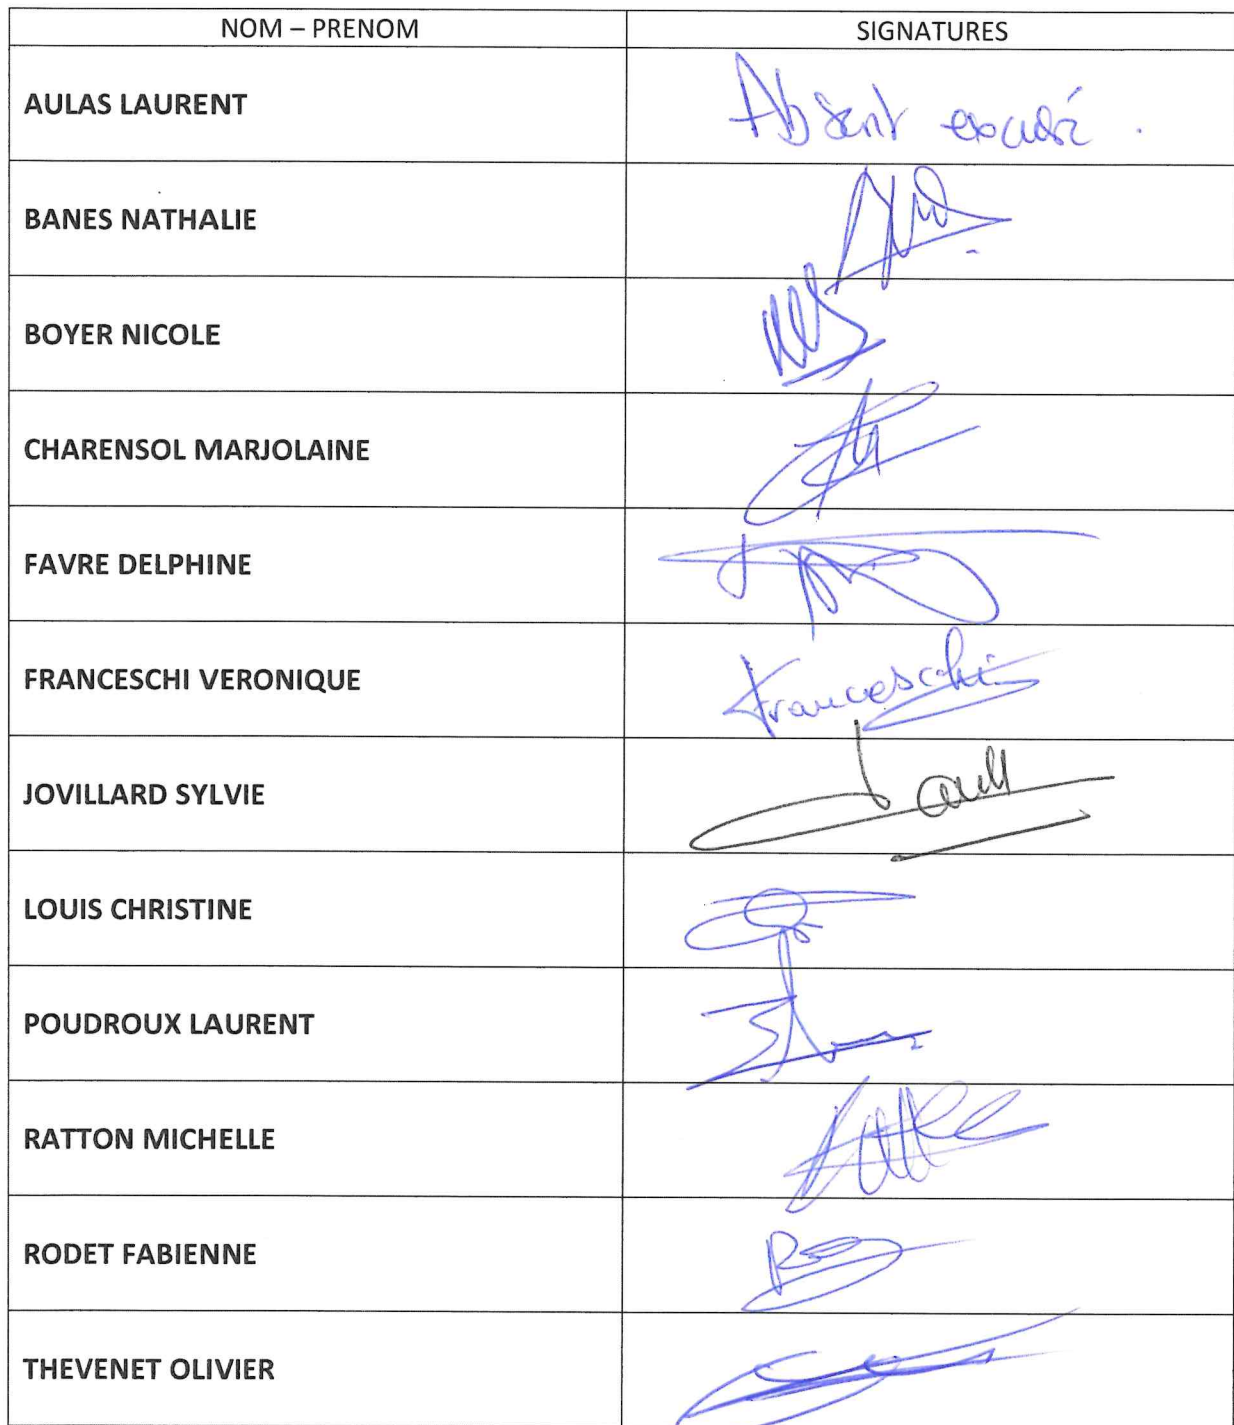 NOM – PRENOM SIGNATURES
AULAS LAURENT Absent excusé.
BANES NATHALIE
BOYER NICOLE
CHARENSOL MARJOLAINE
FAVRE DELPHINE
FRANCESCHI VERONIQUE Franceschi
JOVILLARD SYLVIE
LOUIS CHRISTINE
POUDROUX LAURENT
RATTON MICHELLE
RODET FABIENNE
THEVENET OLIVIER